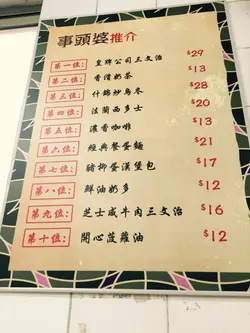 事頭婆推介
第一位: 皇牌公司三文治 $29
第二位: 香滑奶茶 $13
第三位: 什錦炒烏冬 $28
第四位: 法蘭西多士 $20
第五位: 濃香咖啡 $13
第六位: 經典餐蛋麵 $21
第七位: 豬柳蛋漢堡包 $17
第八位: 鮮油奶多 $12
第九位: 芝士咸牛肉三文治 $16
第十位: 開心菠蘿油 $12